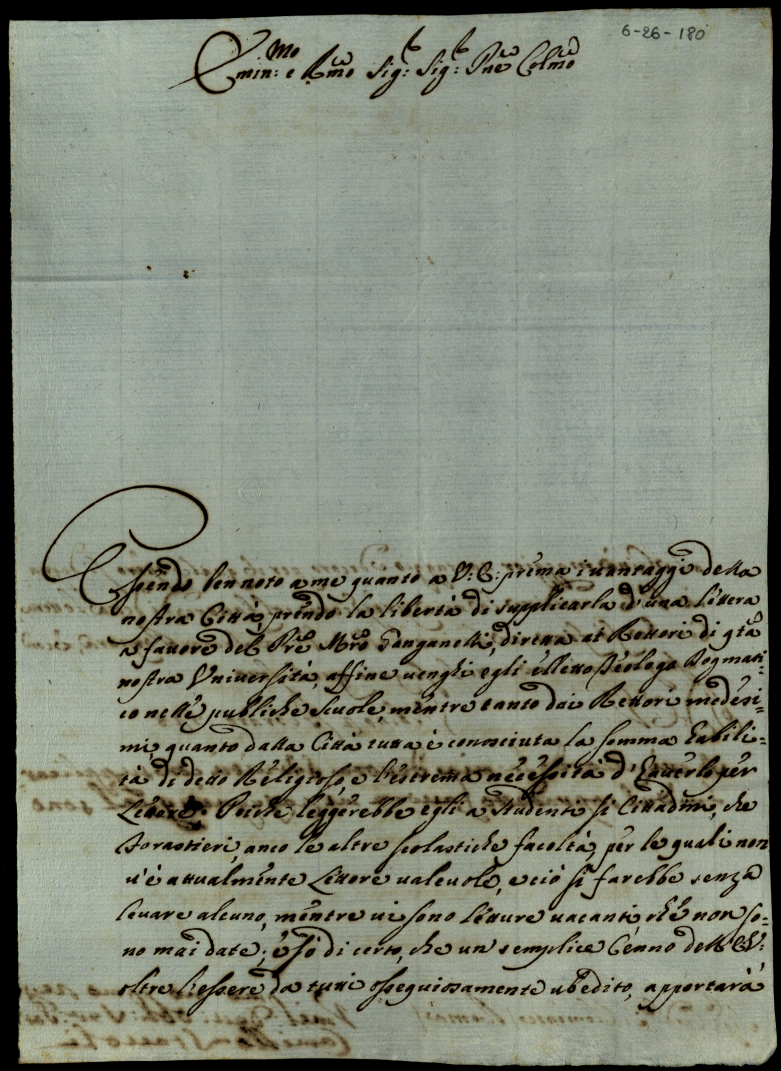 6-26-180
Emin:mo e Rmo Sig:r Sig:r Pne Colmo
Essendo ben noto a me quanto a V: E: prema i uantaggi della
nostra Città, prendo la libertà di supplicarla d'una lettera
a fauore del Pre Mro Ganganelli, diretta ai Rettori di gta
nostra Vniuersità, affine uenghi egli elletto Teologo Dogmati:
co nelle publiche Scuole, mentre tanto dai Rettori medesi:
mi, quanto dalla Città tutta è conosciuta la somma habili:
tà di detto Religioso, e l'estrema necessità d'hauerlo per
Lettore. Poiche leggerebbe egli a studenti si Cittadini, che
Forastieri, anco le altre scolastiche facoltà, per le quali non
u'è attualmente Lettore ualeuole, e ciò si farebbe senza
leuare alcuno, mentre ui sono letture uacanti, che non so:
no mai date; e sò di certo, che un semplice Cenno dell'E: V:
oltre l'essere da tutti ossequiosamente ubedito, apportarà